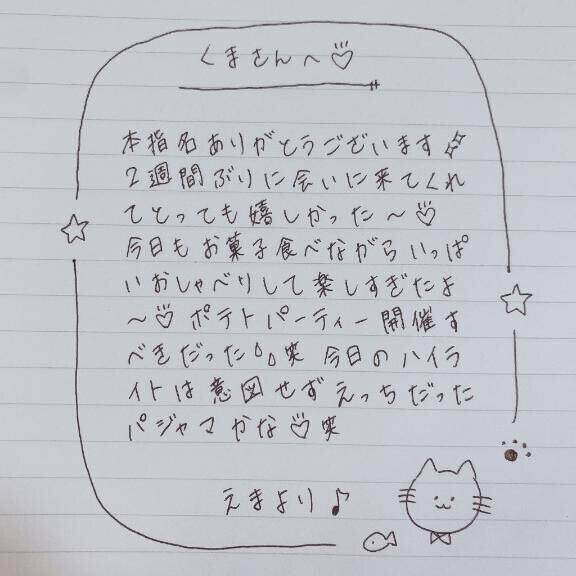 くまさんへ♡
本指名ありがとうございます
2週間ぶりに会いに来てくれ
てとっても嬉しかった〜♡
今日もお菓子食べながらいっぱ
いおしゃべりして楽しすぎたよ
〜♡ ポテトパーティー開催す
べきだった 笑 今日のハイラ
イトは意図せずえっちだった
パジャマかな♡笑
えまより♪